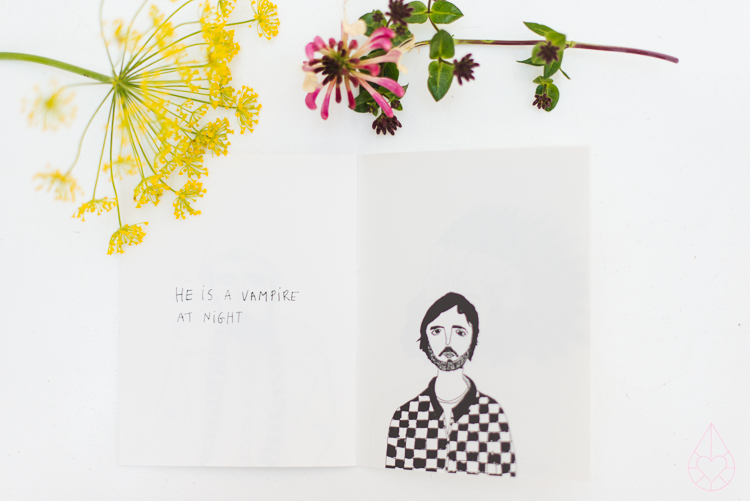 HE iS A VAMPiRE
AT NiGHT